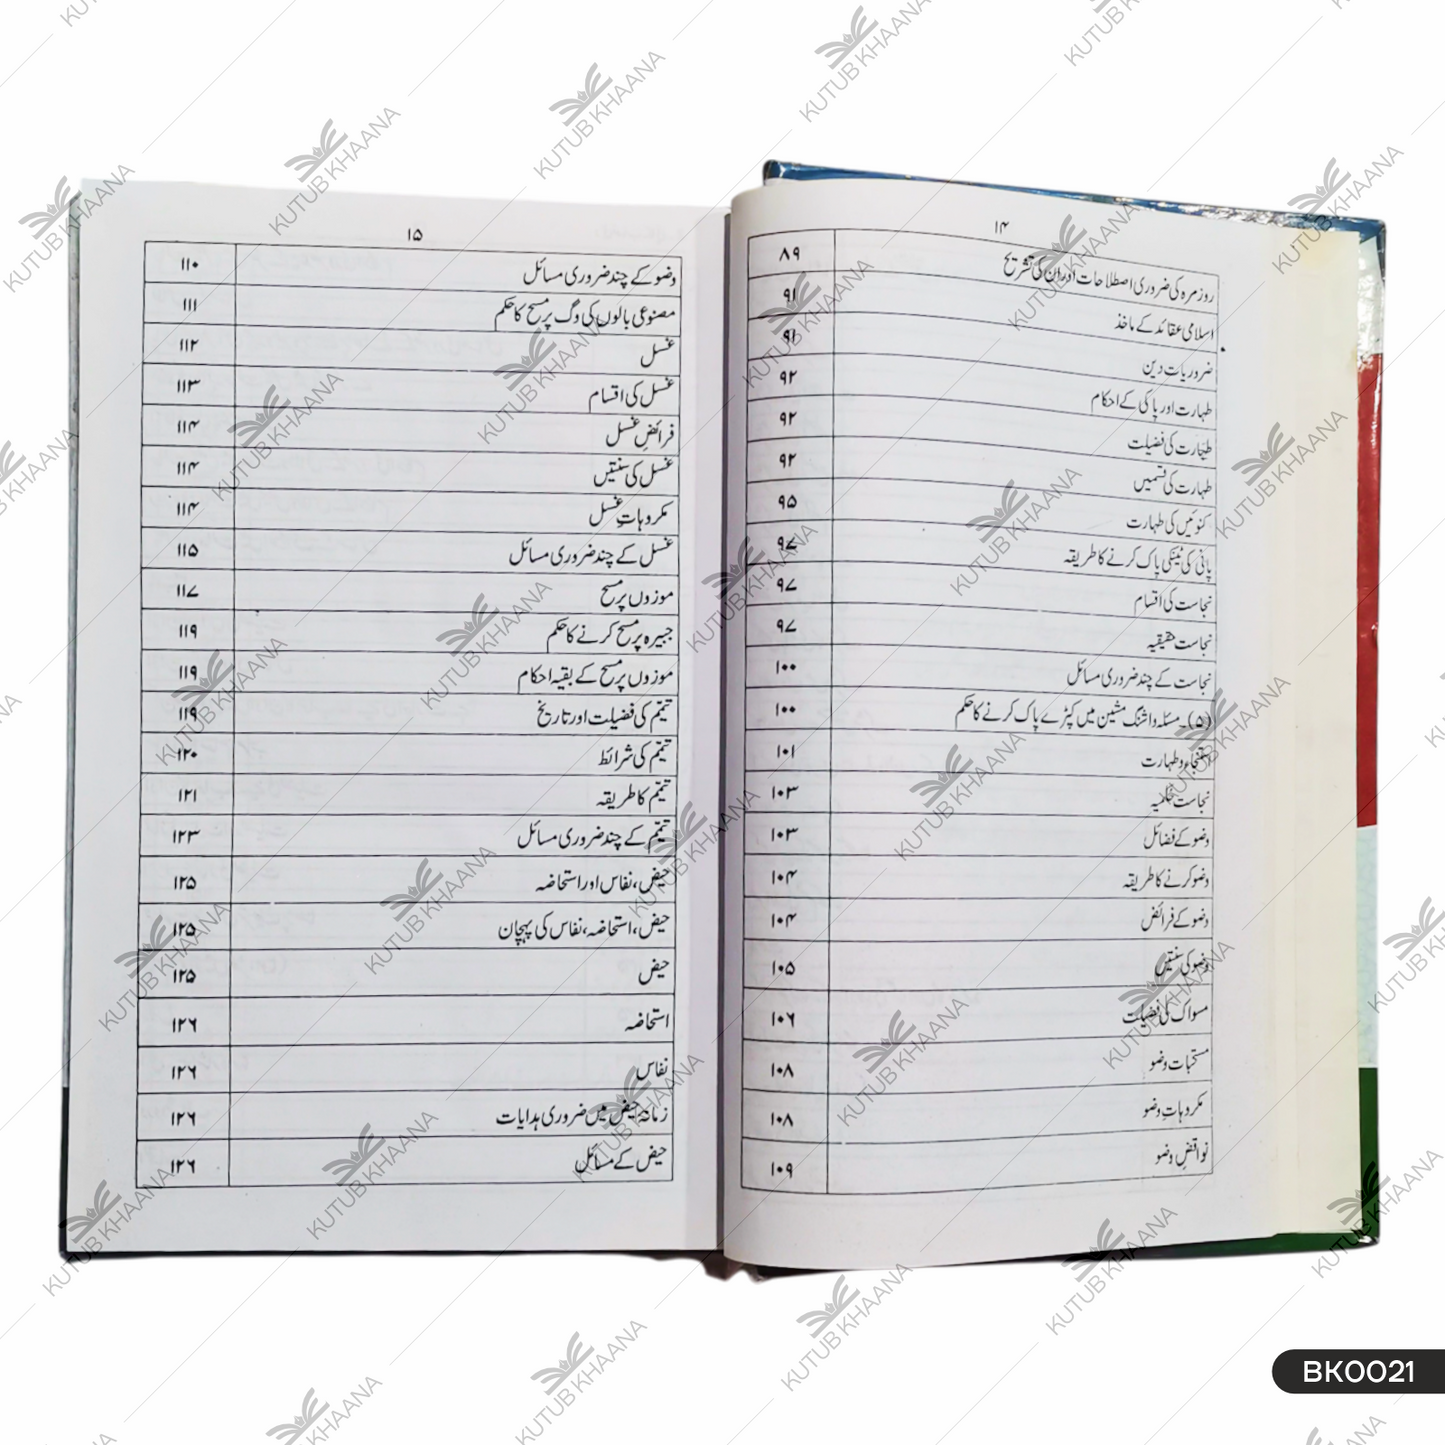 ۱۴
روزمرہ کی ضروری اصطلاحات اور ان کی تشریح ۸۹
اسلامی عقائد کے ماخذ ۹۱
ضروریات دین ۹۱
طہارت اور پاکی کے احکام ۹۲
طہارت کی فضیلت ۹۲
طہارت کی قسمیں ۹۲
کنوئیں کی طہارت ۹۵
پانی کی ٹینکی پاک کرنے کا طریقہ ۹۷
نجاست کی اقسام ۹۷
نجاست حقیقیہ ۹۷
نجاست کے چند ضروری مسائل ۱۰۰
(۵)۔مسئلہ واشنگ مشین میں کپڑے پاک کرنے کا حکم ۱۰۰
استنجاء و طہارت ۱۰۱
نجاست حکمیہ ۱۰۳
وضو کے فضائل ۱۰۳
وضو کرنے کا طریقہ ۱۰۴
وضو کے فرائض ۱۰۴
وضو کی سنتیں ۱۰۵
مسواک کی فضیلت ۱۰۶
مستحبات وضو ۱۰۸
مکروہاتِ وضو ۱۰۸
نواقضِ وضو ۱۰۹
۱۵
وضو کے چند ضروری مسائل ۱۱۰
مصنوعی بالوں کی وگ پر مسح کا حکم ۱۱۱
غسل ۱۱۲
غسل کی اقسام ۱۱۳
فرائضِ غسل ۱۱۴
غسل کی سنتیں ۱۱۴
مکروہاتِ غسل ۱۱۴
غسل کے چند ضروری مسائل ۱۱۵
موزوں پر مسح ۱۱۷
جبیرہ پر مسح کرنے کا حکم ۱۱۹
موزوں پر مسح کے بقیہ احکام ۱۱۹
تیمّم کی فضیلت اور تاریخ ۱۱۹
تیمّم کی شرائط ۱۲۰
تیمّم کا طریقہ ۱۲۱
تیمّم کے چند ضروری مسائل ۱۲۳
حیض، نفاس اور استحاضہ ۱۲۵
حیض، استحاضہ، نفاس کی پہچان ۱۲۵
حیض ۱۲۵
استحاضہ ۱۲۶
نفاس ۱۲۶
زمانہ حیض میں ضروری ہدایات ۱۲۶
حیض کے مسائل ۱۲۶
KUTUB KHAANA
BK0021